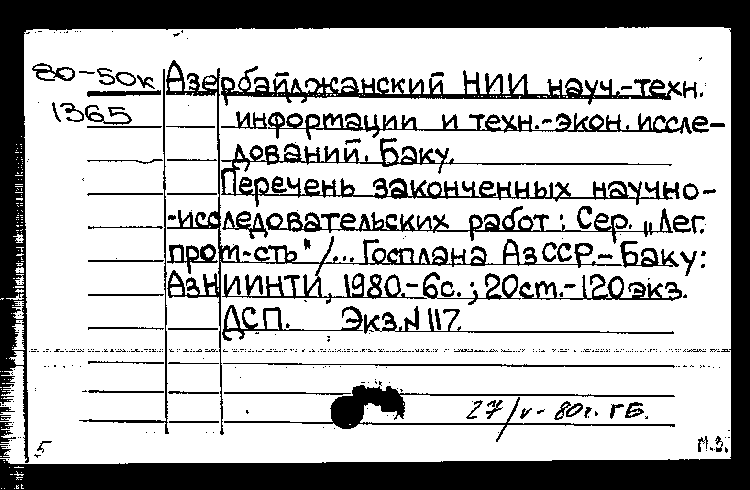 80-50к Азербайджанский НИИ науч.-техн.
1365 информации и техн.-экон. иссле-
дований. Баку.
Перечень законченных научно-
-исследовательских работ: Сер. „Лег.
пром-сть" /... Госплана АзССР.- Баку:
АзНИИНТИ, 1980.-6с.; 20см.-120экз.
ДСП. Экз.N117.
27/V- 80г. ГБ.
5 М.З.